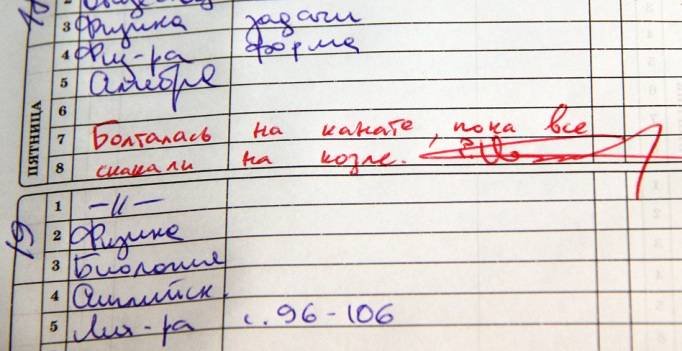 3 Физика задачи
4 Физ-ра форма
5 Алгебра
6
ПЯТНИЦА
7 Болталась на канате, пока все
8 скакали на козле.
19
1 —||—
2 Физика
3 Биология
4 Английск.
5 Лит-ра с. 96-106